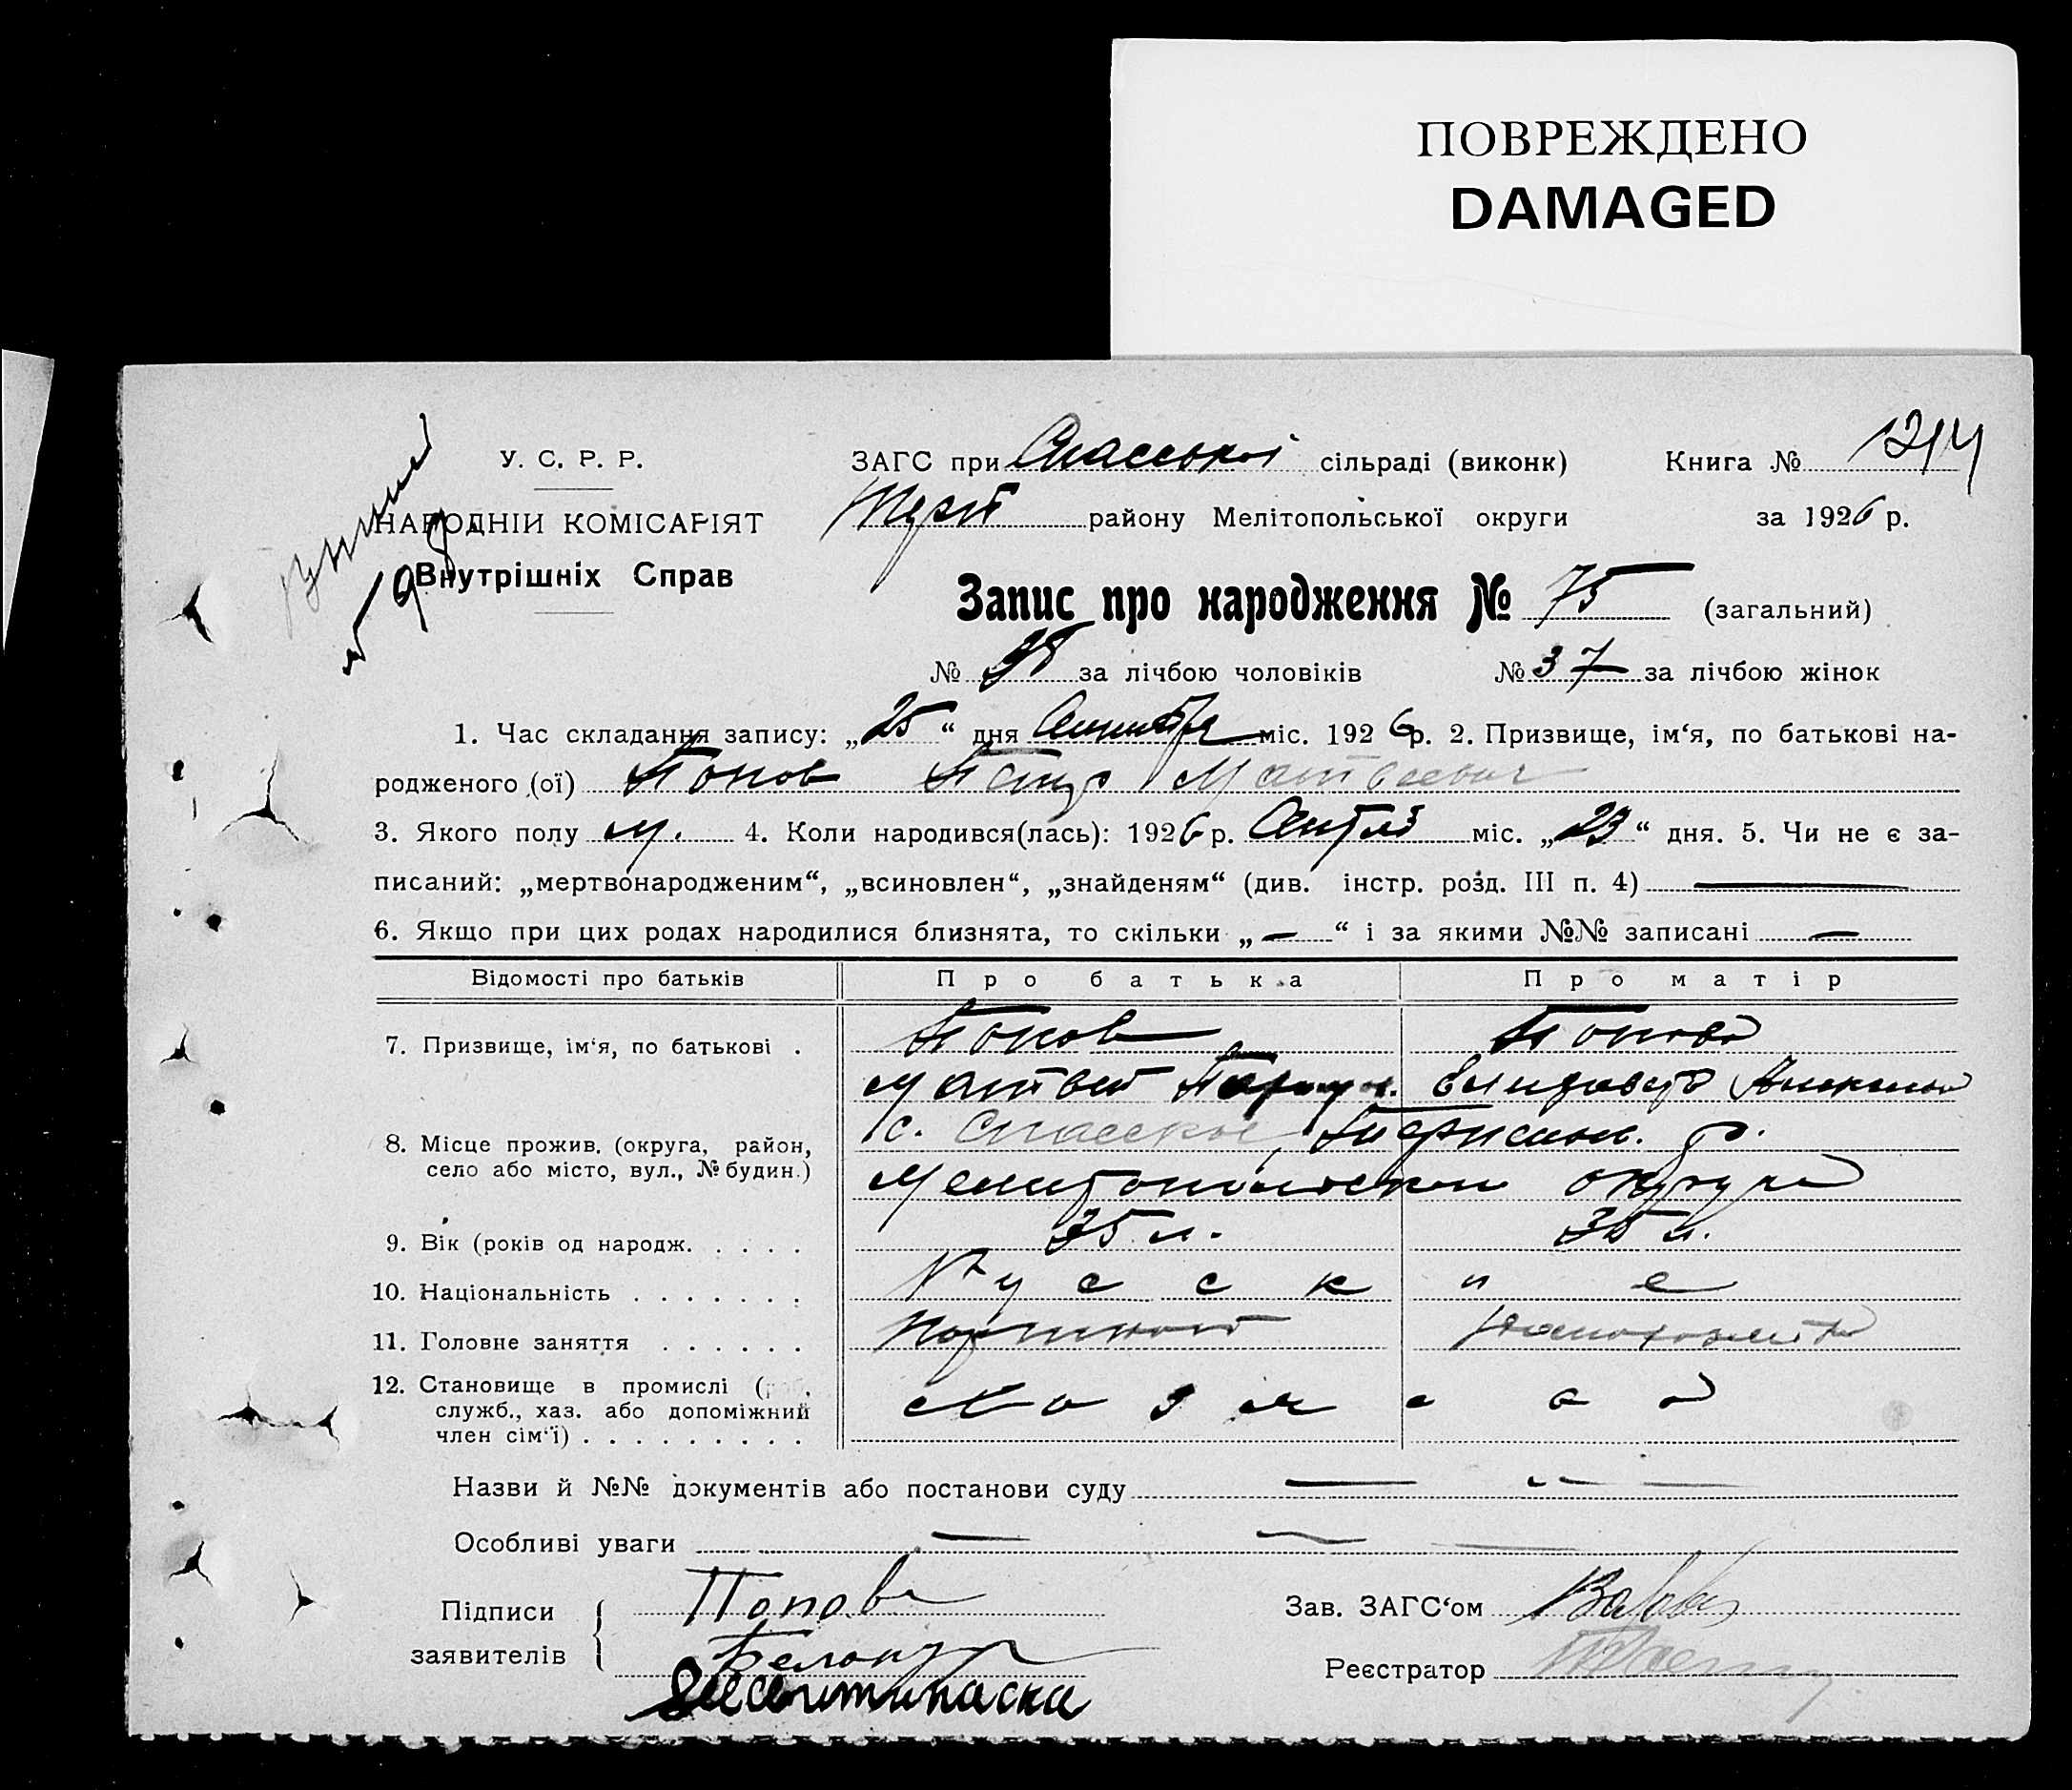 ПОВРЕЖДЕНО
DAMAGED
У. С. Р. Р.
НАРОДНІЙ КОМІСАРІЯТ
Внутрішніх Справ
ЗАГС при Спаської сільраді (виконк) Книга №
району Мелітопольської округи за 1926 р.
Запис про народження № 75 (загальний)
№ 38 за лічбою чоловіків № 37 за лічбою жінок
1. Час складання запису: „25“ дня Сентября міс. 1926 р. 2. Призвище, ім‘я, по батькові на-
родженого (ої) Попов Петр Матвеевич
3. Якого полу м. 4. Коли народився(лась): 1926 р. міс. „23“ дня. 5. Чи не є за-
писаний: „мертвонародженим“, „всиновлен“, „знайденям“ (див. інстр. розд. III п. 4) —
6. Якщо при цих родах народилися близнята, то скільки „—“ і за якими №№ записані —
Відомості про батьків Про батька Про матір
7. Призвище, ім‘я, по батькові . Попов Попова
Матвей Елизавета
8. Місце прожив. (округа, район, с. Спасское
село або місто, вул., № будин.) Мелитопольской округа
9. Вік (років од народж. . . . . 35 л. 35 л.
10. Національність . . . . . . . Русские
11. Головне заняття . . . . . . Портной Домохозяйка
12. Становище в промислі (роб.,
служб., хаз. або допоміжний
член сім‘ї) . . . . . . . . .
Назви й №№ документів або постанови суду — — —
Особливі уваги — — —
Підписи Попов Зав. ЗАГС‘ом
заявителів
Реєстратор